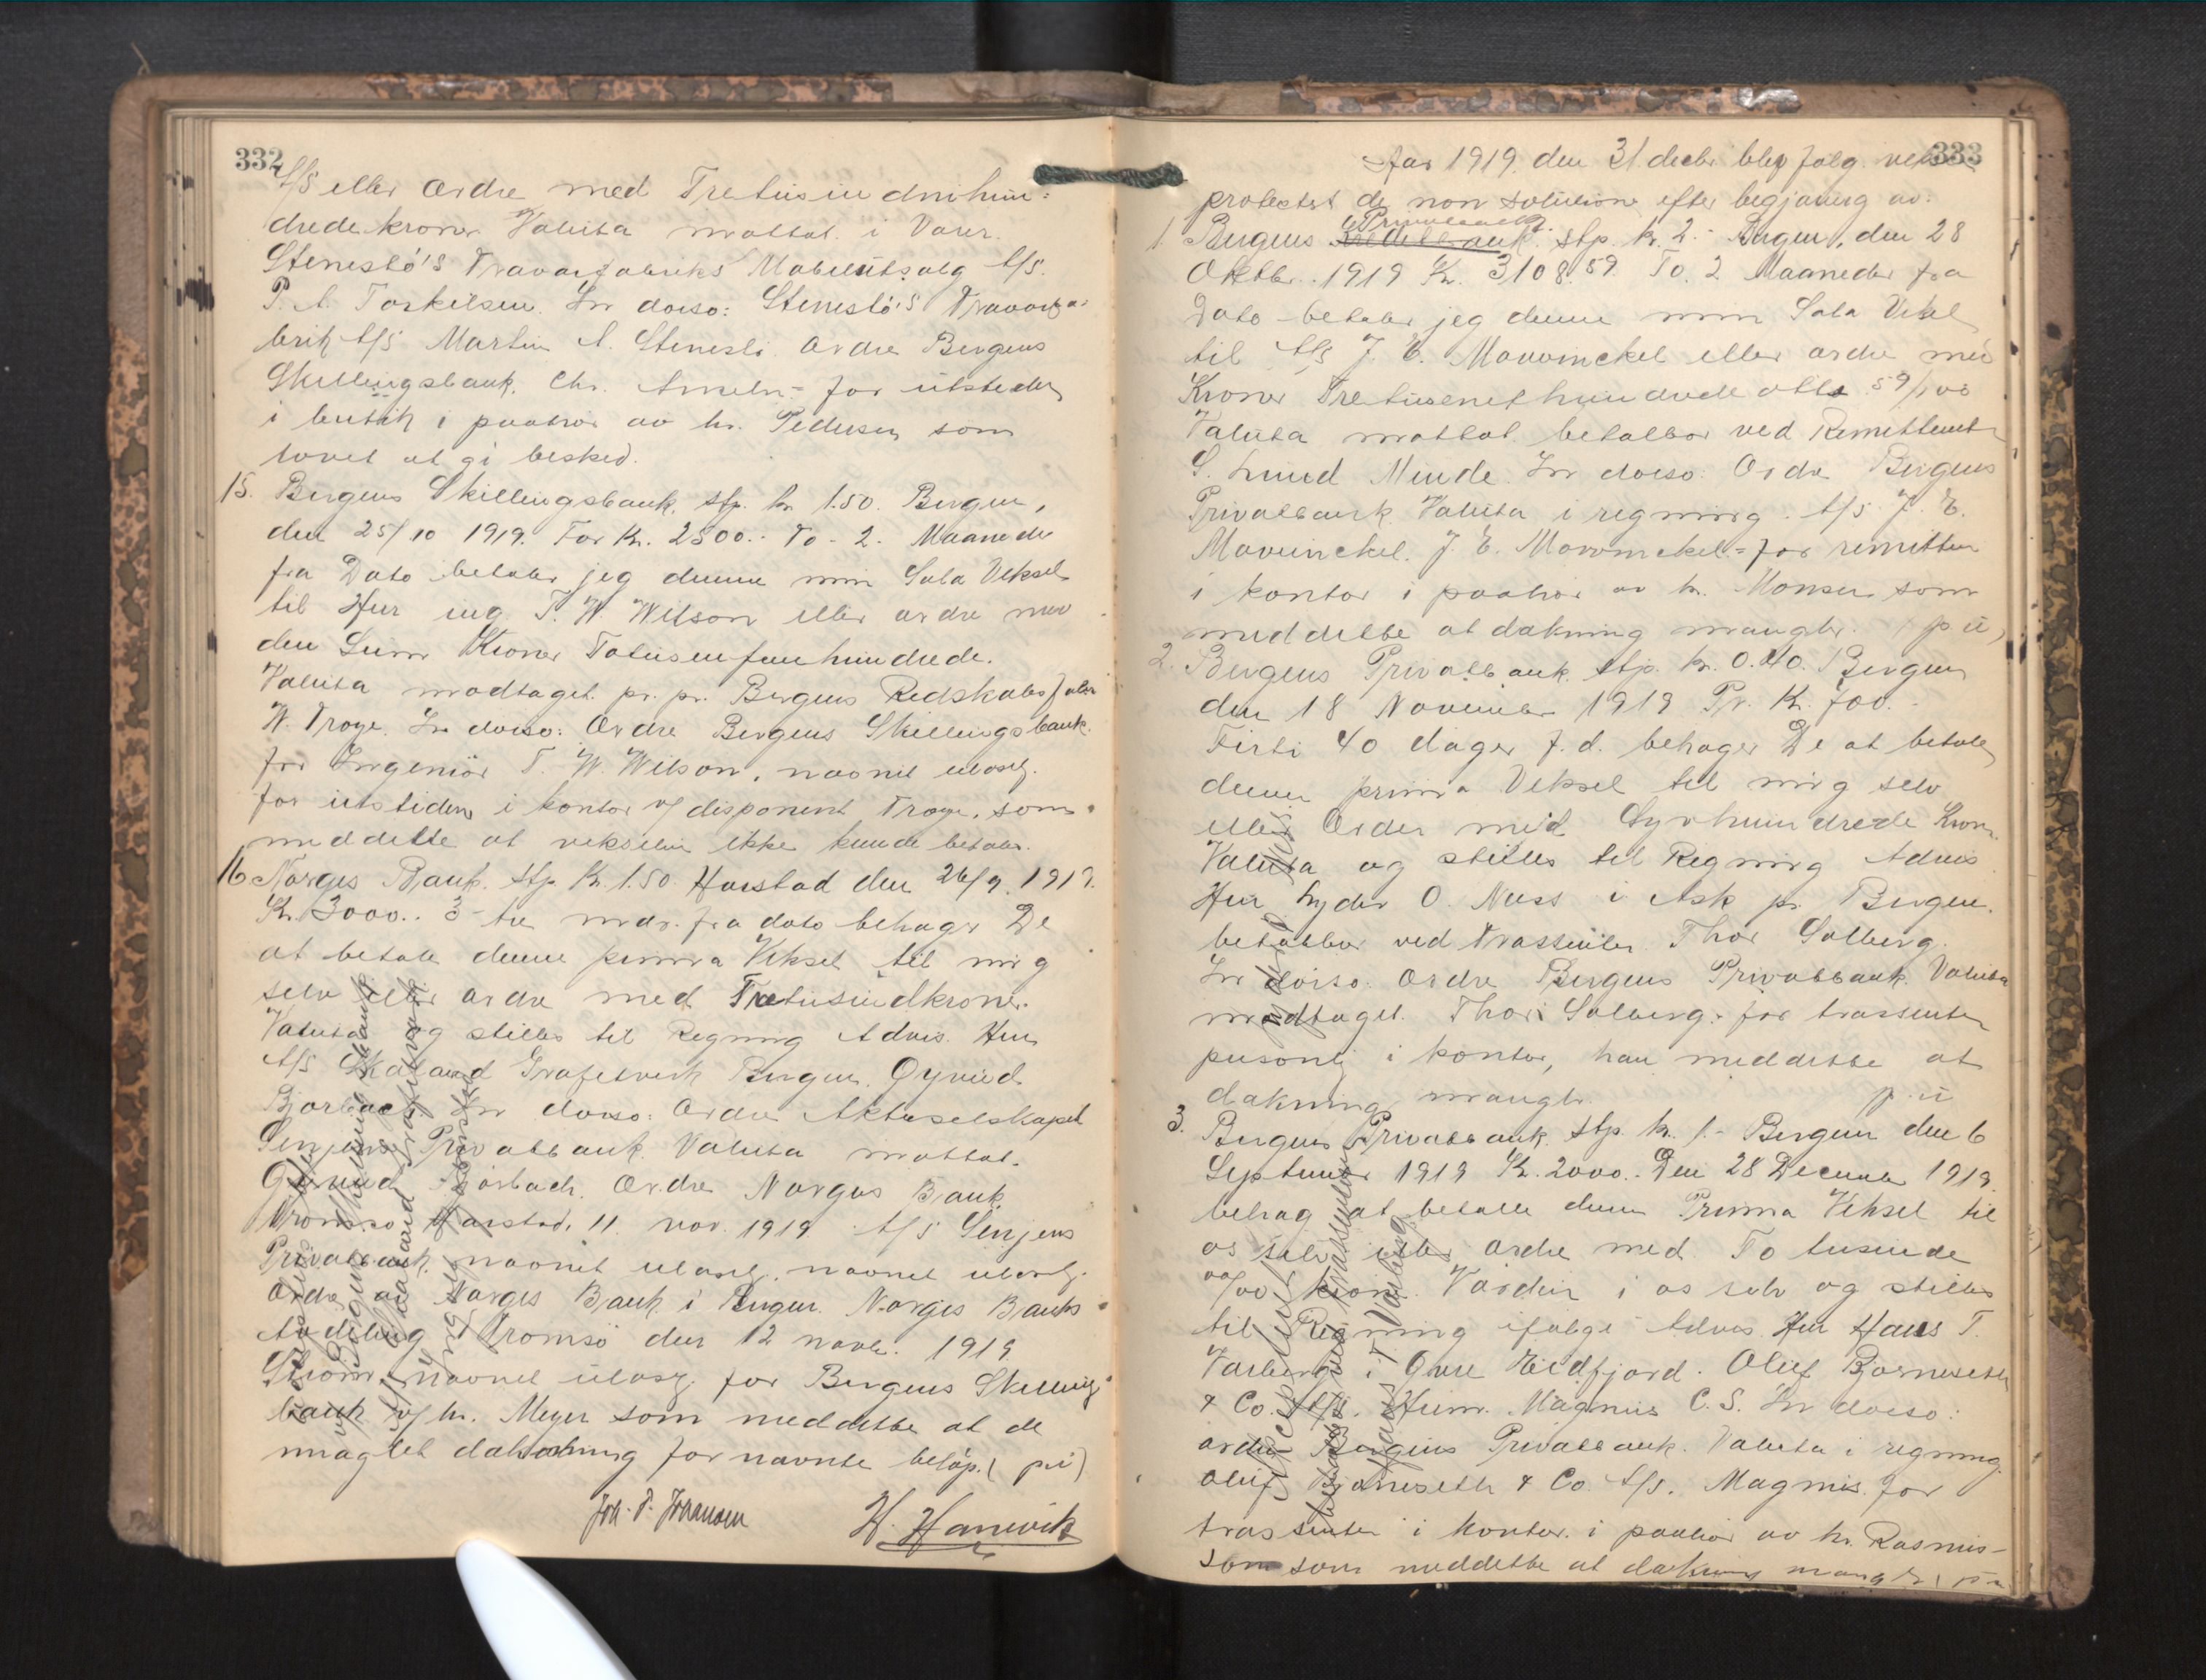 332
A/S eller Ordre med Tretusindnihun=
drede kroner Valuta mottat i Varer.
Steneslö's Travarefabriks Möbelutsalg A/S.
P. A. Torkilsen. In dorso: Steneslö's Travarefa-
brik A/S Martin A. Stenesli. Ordre Bergens
Skillingsbank. Chr. = for utsteder
i butik i paahör av hr. Pedersen som
lovet at gi besked.
15. Bergens Skillingsbank. stp. kr 1.50. Bergen,
den 25/10 1919. For Kr. 2500.- To - 2. Maaneder
fra Dato betaler jeg denne min Sola Veksel
til Herr ing T. W. Wilson eller ordre med
den Sum Kroner Totusenfemhundrede.
Valuta modtaget. pr. pr. Bergens Redskabsfabr
W. Troye. In dorso: Ordre Bergens Skillingsbank.
for Ingeniör T. W. Wilson, navnet ulæsel.
for utsteder i kontor v/ disponent Troye, som
meddelte at vekselen ikke kunde betales.
16 Norges Bank. stp Kr. 1.50 Harstad den 26/9. 1919.
Kr. 3000.. 3 - tre mdr. fra dato behager De
at betale denne prima Veksel til mig
selv eller ordre med Tretusindkroner.
Valuta og stilles til Regning Advis. Herr
A/S Skaland Grafitverk Bergen. Øyvind
Bjorbæch In dorso: Ordre Aktieselskapet
Senjens Privatbank. Valuta mottat.
Øyvind Bjorbæch. Ordre Norges Bank
Tromsø Harstad, 11. nov. 1919 A/S Senjens
Privatbank. navnet ulæselg. navnet ulæselg.
Ordre av Norges Bank i Bergen. Norges Banks
Avdeling Tromsö den 12 novbr. 1919
navnet ulæsg. for Bergens Skillings
bank v/ hr. Meyer som meddelte at de
manglet dækning for nævnte beløp. (p.u)
Joh. P. Johansen H. Hanevik
333
Aar 1919. den 31 decbr blev følg veksler
protestert de non solutione efter begjæring av:
1. Bergens Kreditbank Privatbank. stp. kr. 2.- Bergen, den 28
Oktbr. 1919 Kr. 3108.59. To 2 Maaneder fra
Dato betaler jeg denne min Sola Veksel
til A/S J. E. Mowinckel eller ordre med
Kroner Tretusenethundrede otte 59/100
Valuta mottat. betalbar ved Remittenten
S. Lund Minde. In dorso: Ordre Bergens
Privatbank Valuta i regning. A/S J. E.
Mowinckel. J. E. Mowinckel.= for remittent
i kontor i paahör av hr. Monsen som
meddelte at dækning mangler. (p u)
2. Bergens Privatbank stp. kr. 0.40. Bergen
den 18 November 1919 Pr. Kr. 700.-
Firti 40 dager f. d. behager De at betale
denne prima Veksel til mig selv
eller Order med Syvhundrede Kroner
Valuta og stilles til Regning Advis
Herr Lyder O. Ness i Ask pr. Bergen.
betalbar ved Trassenten Thor Solberg.
In dorso. Ordre Bergens Privatbank Valuta
modtaget. Thor Solberg.= for trassenten
personlig i kontor, han meddelte at
dækning mangler. p. u
3. Bergens Privatbank. stp. kr. 1.- Bergen den 6
September 1919 Kr. 2000.- Den 28 December 1919.
behag at betale denne Prima Veksel til
os selv eller ordre med To tusinde
00/00 kroner. Værdien i os selv og stilles
til Regning ifølge Advis Herr Hans T.
Varberg i Øvre Eidfjord. Oluf Bjørneseth
& Co. A/S. Heim. Magnus C. S. In dorso:
ordre Bergens Privatbank. Valuta i regning.
Oluf Bjørneseth & Co A/S. Magnus. for
trassenten i kontor. i paahör av hr. Rasmus-
sen som meddelte at dækning mangler (p u